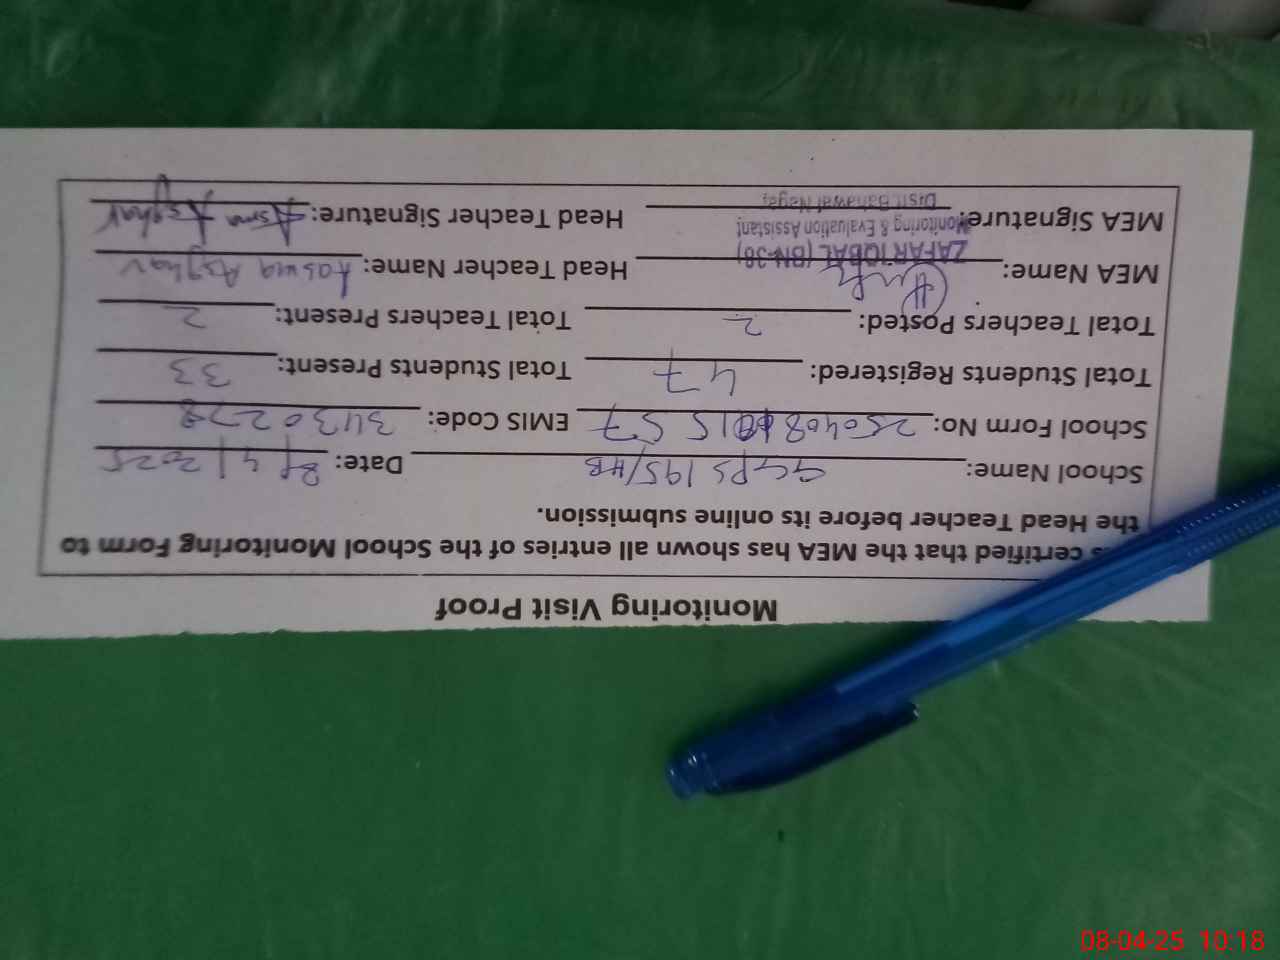 Monitoring Visit Proof
certified that the MEA has shown all entries of the School Monitoring Form to
the Head Teacher before its online submission.
School Name: GGPS 195/HB Date: 8/4/2025
School Form No: EMIS Code: 3430278
Total Students Registered: 47 Total Students Present: 33
Total Teachers Posted: 2 Total Teachers Present: 2
MEA Name: ZAFAR IQBAL (BN-38) Head Teacher Name: Asghar
Monitoring & Evaluation Assistant
MEA Signature: Head Teacher Signature: Asma Asghar
Distt. Bahawal Nagar
08-04-25 10:18